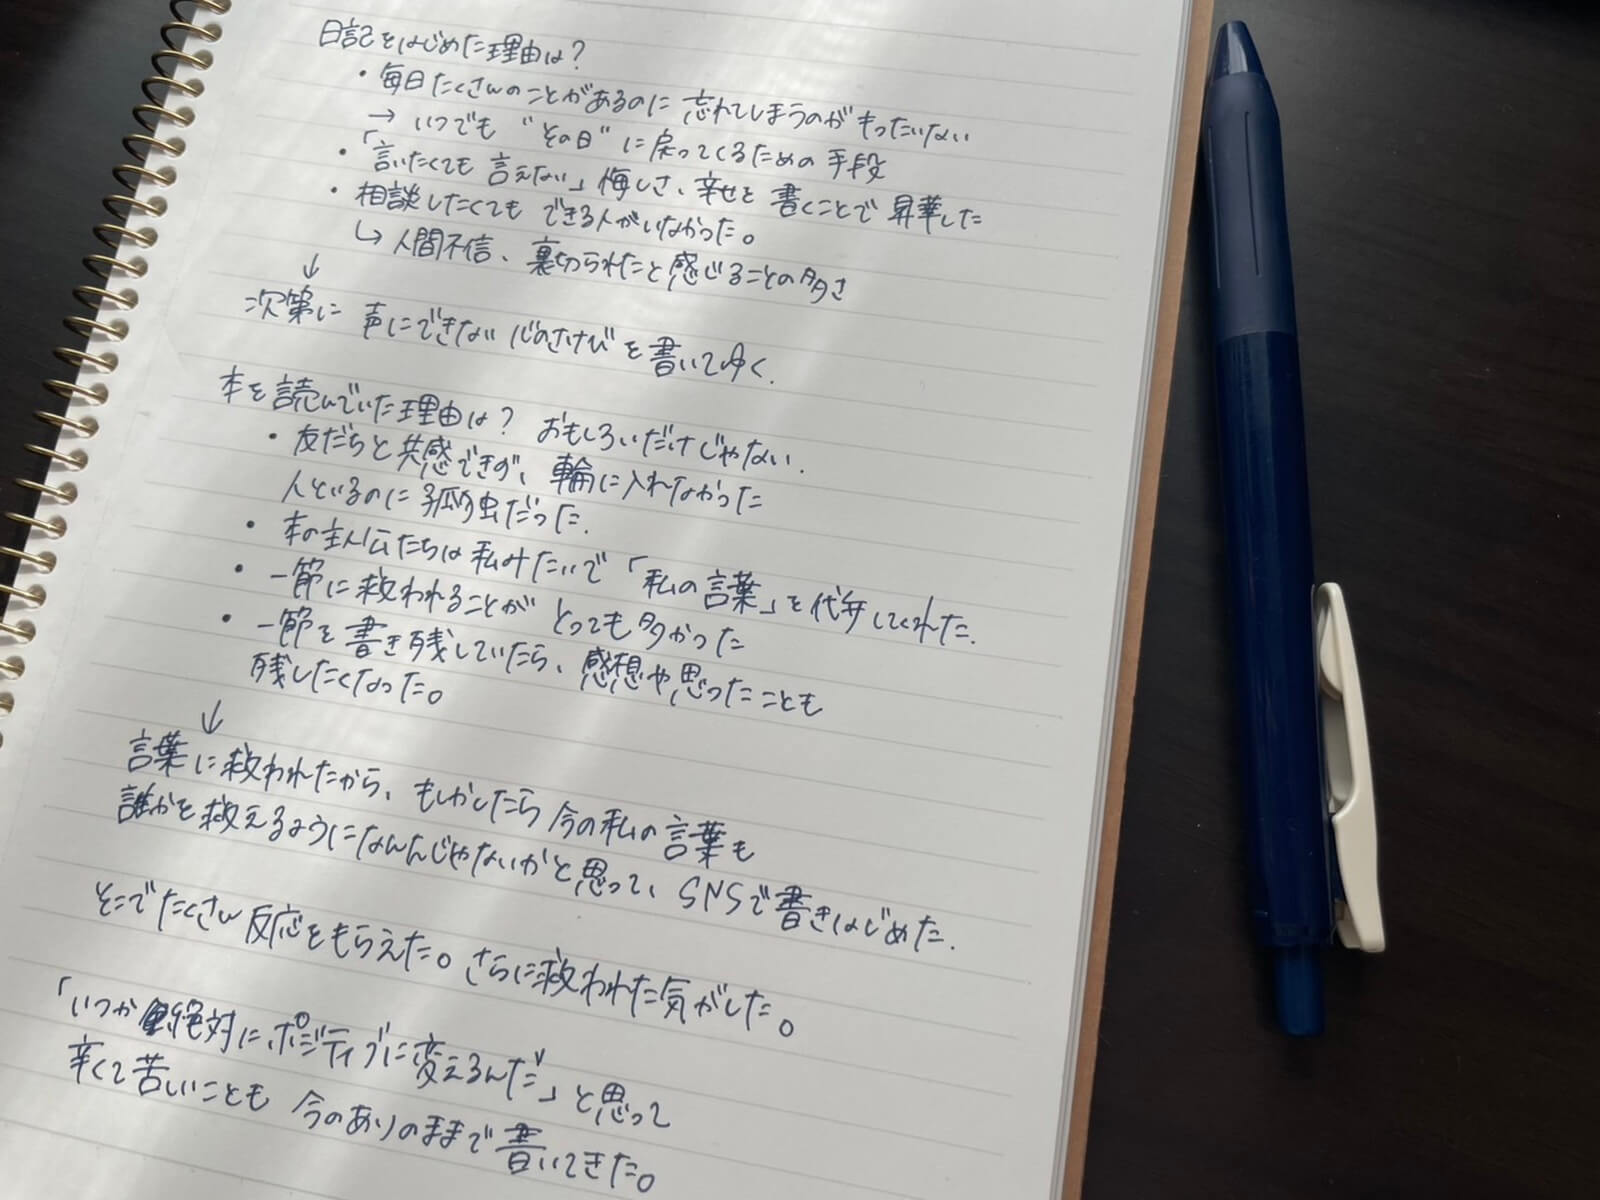 日記をはじめた理由は?
・毎日たくさんのことがあるのに忘れてしまうのがもったいない
→いつでも"その日"に戻ってくるための手段
・「言いたくても言えない」悔しさ、辛せを書くことで昇華した
・相談したくてもできる人がいなかった。
↳人間不信、裏切られたと感じることの多さ
↓
次第に声にできない心のさけびを書いてゆく.
本を読んでいた理由は? おもしろいだけじゃない.
・友だちと共感できず、輪に入れなかった
人といるのに孤独だった.
・本の主人公たちは私みたいで「私の言葉」を代弁してくれた.
・一節に救われることがとっても多かった
・一節を書き残していたら、感想や思ったことも
残したくなった。
↓
言葉に救われたから、もしかしたら今の私の言葉も
誰かを救えるようになんんじゃないかと思って、SNSで書きはじめた.
そこでたくさん反応をもらえた。さらに救われた気がした。
「いつか絶対にポジティブに変えるんだ」と思って
辛くて苦しいことも今のありのままで書いてきた。